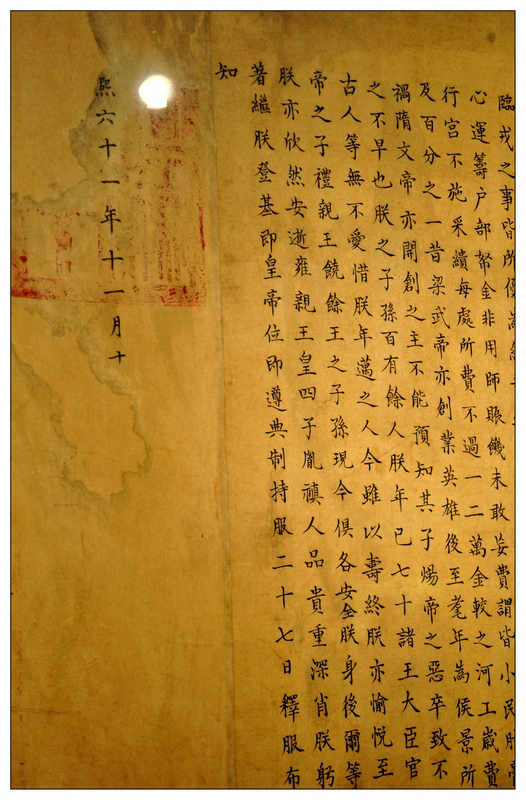 臨戎之事皆所優為
心運籌户部帑金非用師賑饑未敢妄費謂皆小民脂膏
行宮不施采繢每處所費不過一二萬金較之河工歲費
及百分之一昔梁武帝亦創業英雄後至耄年為侯景所
禍隋文帝亦開創之主不能預知其子煬帝之惡卒致不
之不早也朕之子孫百有餘人朕年已七十諸王大臣官
古人等無不愛惜朕年邁之人今雖以壽終朕亦愉悅至
帝之子禮親王饒餘王之子孫現今俱各安全朕身後爾等
朕亦欣然安逝雍親王皇四子胤禛人品貴重深肖朕躬
著繼朕登基即皇帝位即遵典制持服二十七日釋服布
知
熙六十一年十一月十